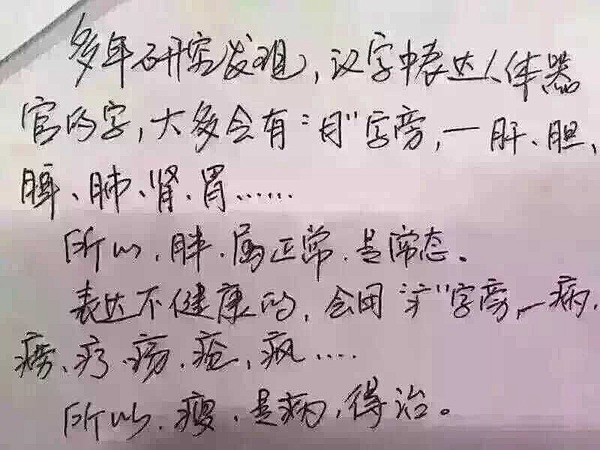 多年研究发现，汉字中表达人体器
官的字，大多会有"月"字旁，—肝、胆、
脾、肺、肾、胃……
所以，胖，属正常，是常态。
表达不健康的，会用"疒"字旁，—病，
痨、疗、疡，疮，疯….
所以，瘦，是病，得治。